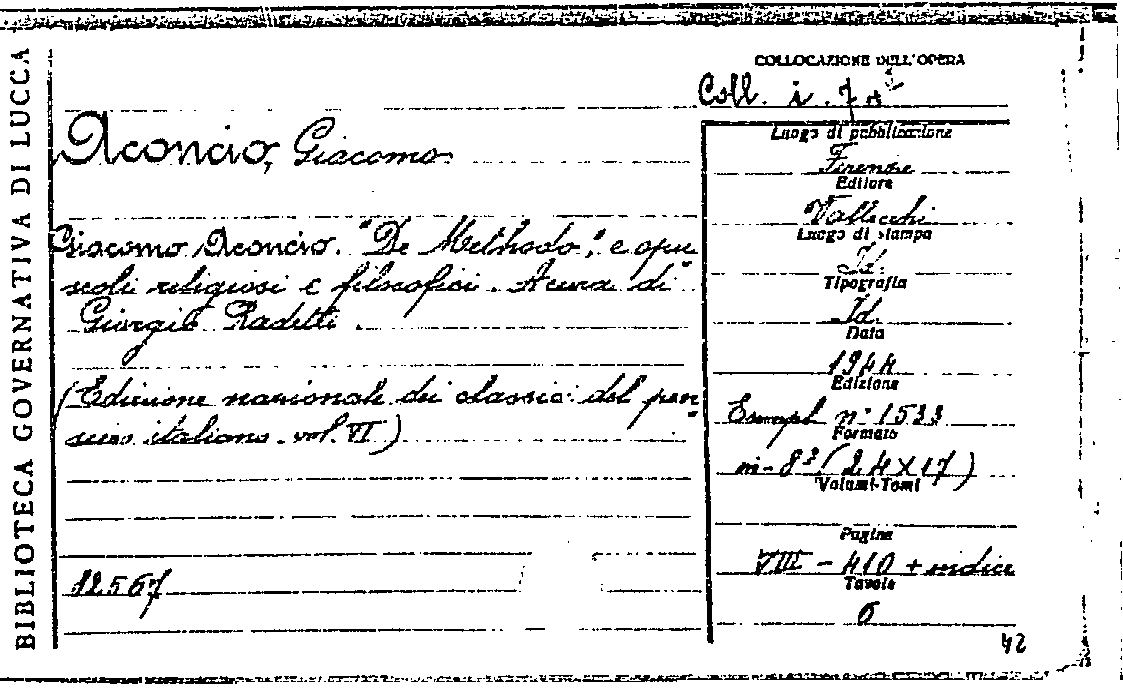 BIBLIOTECA GOVERNATIVA DI LUCCA
COLLOCAZIONE DELL'OPERA
Coll. i. 7
Aconcio, Giacomo.
Giacomo Aconcio. "De Methodo", e opu
scoli religiosi e filosofici. A cura di
Giorgio Radetti.
(Edizione nazionale dei classici del pen
siero italiano. vol. VI)
12567
Luogo di pubblicazione
Firenze
Editore
Vallecchi
Luogo di stampa
Id.
Tipografia
Id.
Data
1944
Edizione
Esempl. n° 1533
Formato
in-8° (24X17)
Volumi-Tomi
Pagine
VIII - 410 + indice
Tavole
0
42